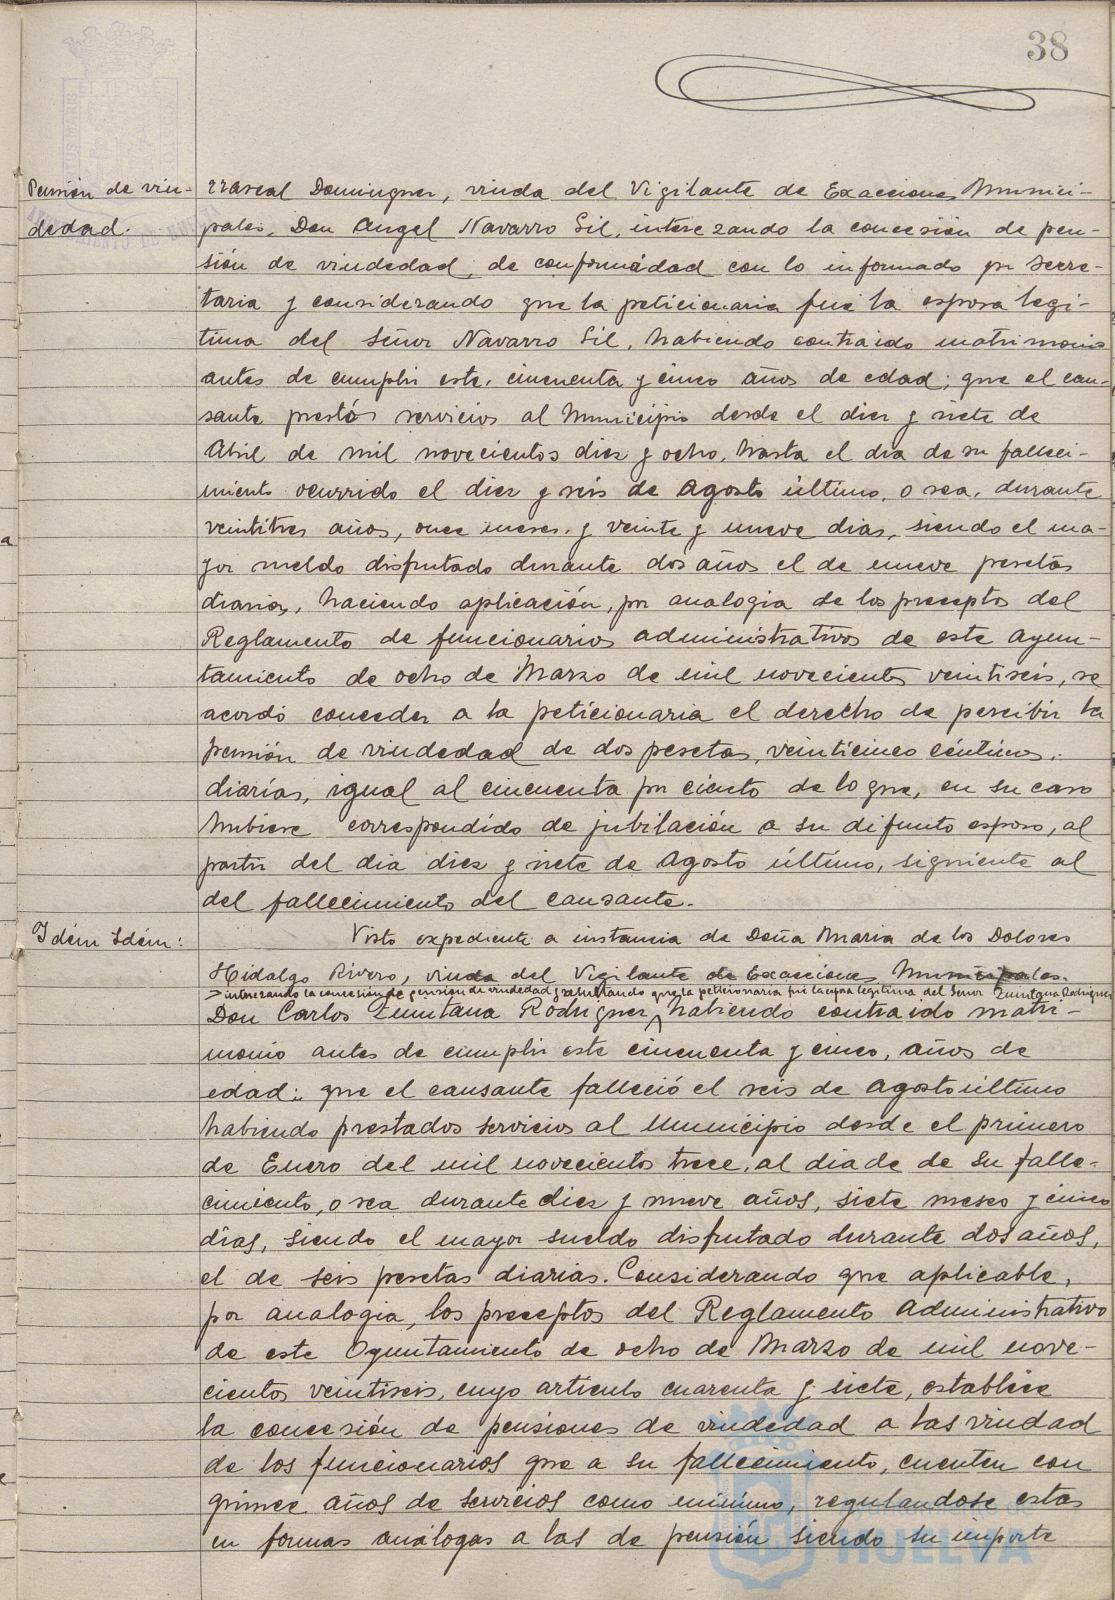 38
Pensión de viu-
dedad.
Mascal Dominguez, viuda del Vigilante de Exacciones Munici-
pales, Don Angel Navarro Gil, interezando la concesión de pen-
sión de viudedad, de conformidad con lo informado por Secre-
taria y considerando que la peticionaria fué la esposa legi-
tima del Señor Navarro Gil, habiendo contraido matrimonio
antes de cumplir este, cincuenta y cinco años de edad; que el cau-
sante prestó servicios al Municipio desde el diez y siete de
Abril de mil novecientos diez y ocho, hasta el dia de su falleci-
miento ocurrido el diez y seis de Agosto último, o sea, durante
veintitres años, once meses, y veinte y nueve dias, siendo el ma-
yor sueldo disfrutado durante dos años el de nueve pesetas
diarias, haciendo aplicación, por analogia de los preceptos del
Reglamento de funcionarios administrativos de este Ayun-
tamiento de ocho de Marzo de mil novecientos veintiseis, se
acordó conceder a la peticionaria el derecho de percibir la
pensión de viudedad de dos pesetas, veinticinco céntimos,
diarias, igual al cincuenta por ciento de lo que, en su caso
hubiese correspondido de jubilación a su difunto esposo, al
partir del dia diez y siete de Agosto último, siguiente al
del fallecimiento del causante.
Idém Idém:
Visto expediente a instancia de Doña Maria de los Dolores
Hidalgo Rivero, viuda del Vigilante de Exacciones Municipales.
> interezando la concesión de pensión de viudedad y resultando que la peticionaria fué la esposa legitima del Señor Quintana Rodriguez
Don Carlos Quintana Rodriguez, habiendo contraido matri-
monio antes de cumplir este cincuenta y cinco, años de
edad; que el causante falleció el seis de Agosto último
habiendo prestados servicios al Municipio desde el primero
de Enero del mil novecientos trece, al dia de de su falle-
cimiento, o sea durante diez y nueve años, siete meses y cinco
días, siendo el mayor sueldo disfrutado durante dos años,
el de seis pesetas diarias. Considerando que aplicable,
por analogia, los preceptos del Reglamento Administrativo
de este Ayuntamiento de ocho de Marzo de mil nove-
cientos veintiseis, cuyo articulo cuarenta y siete, establece
la concesión de pensiones de viudedad a las viudad
de los funcionarios que a su fallecimiento, cuenten con
quince años de servicios como mínimo, regulandose estas
en formas análogas a las de pensión siendo su importe
HUELVA